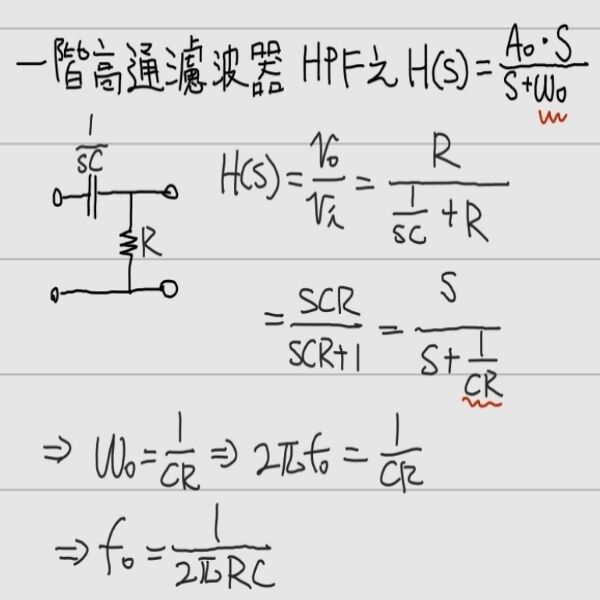 一階高通濾波器 HPF之 H(S)=A₀·S/S+W₀
1/SC
R
H(S)=V₀/Vᵢ=R/(1/SC+R)
=SCR/SCR+1=S/(S+1/CR)
⇒ W₀=1/CR⇒2πf₀=1/CR
⇒f₀=1/2πRC